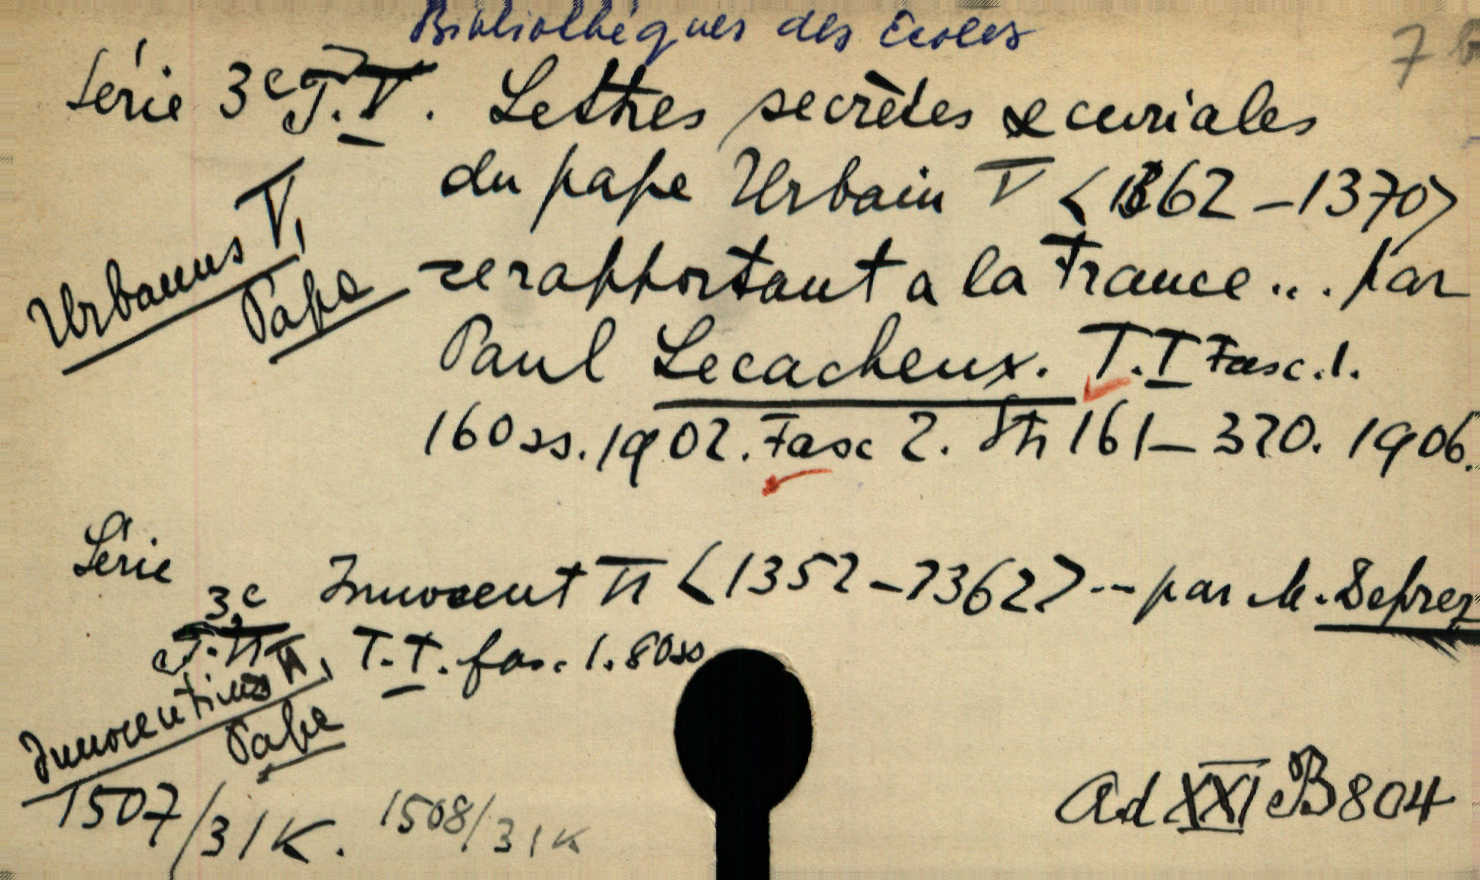 Bibliothèques des Écoles
7
Série 3e T.V. Lettres secrètes & curiales
du pape Urbain V <1362-1370>
Urbanus V,
Papa
se rapportant a la France... par
Paul Lecacheux. T.I Fasc.1.
160 ss. 1902. Fasc 2. Str 161-320. 1906.
Série
3e Innocent VI <1352-1362> -- par M. Deprez
T.VI T.I. fasc. 1. 80 ss
Innocentius VI,
Papa
1507/31K. 1508/31K
Ad XXI B 804